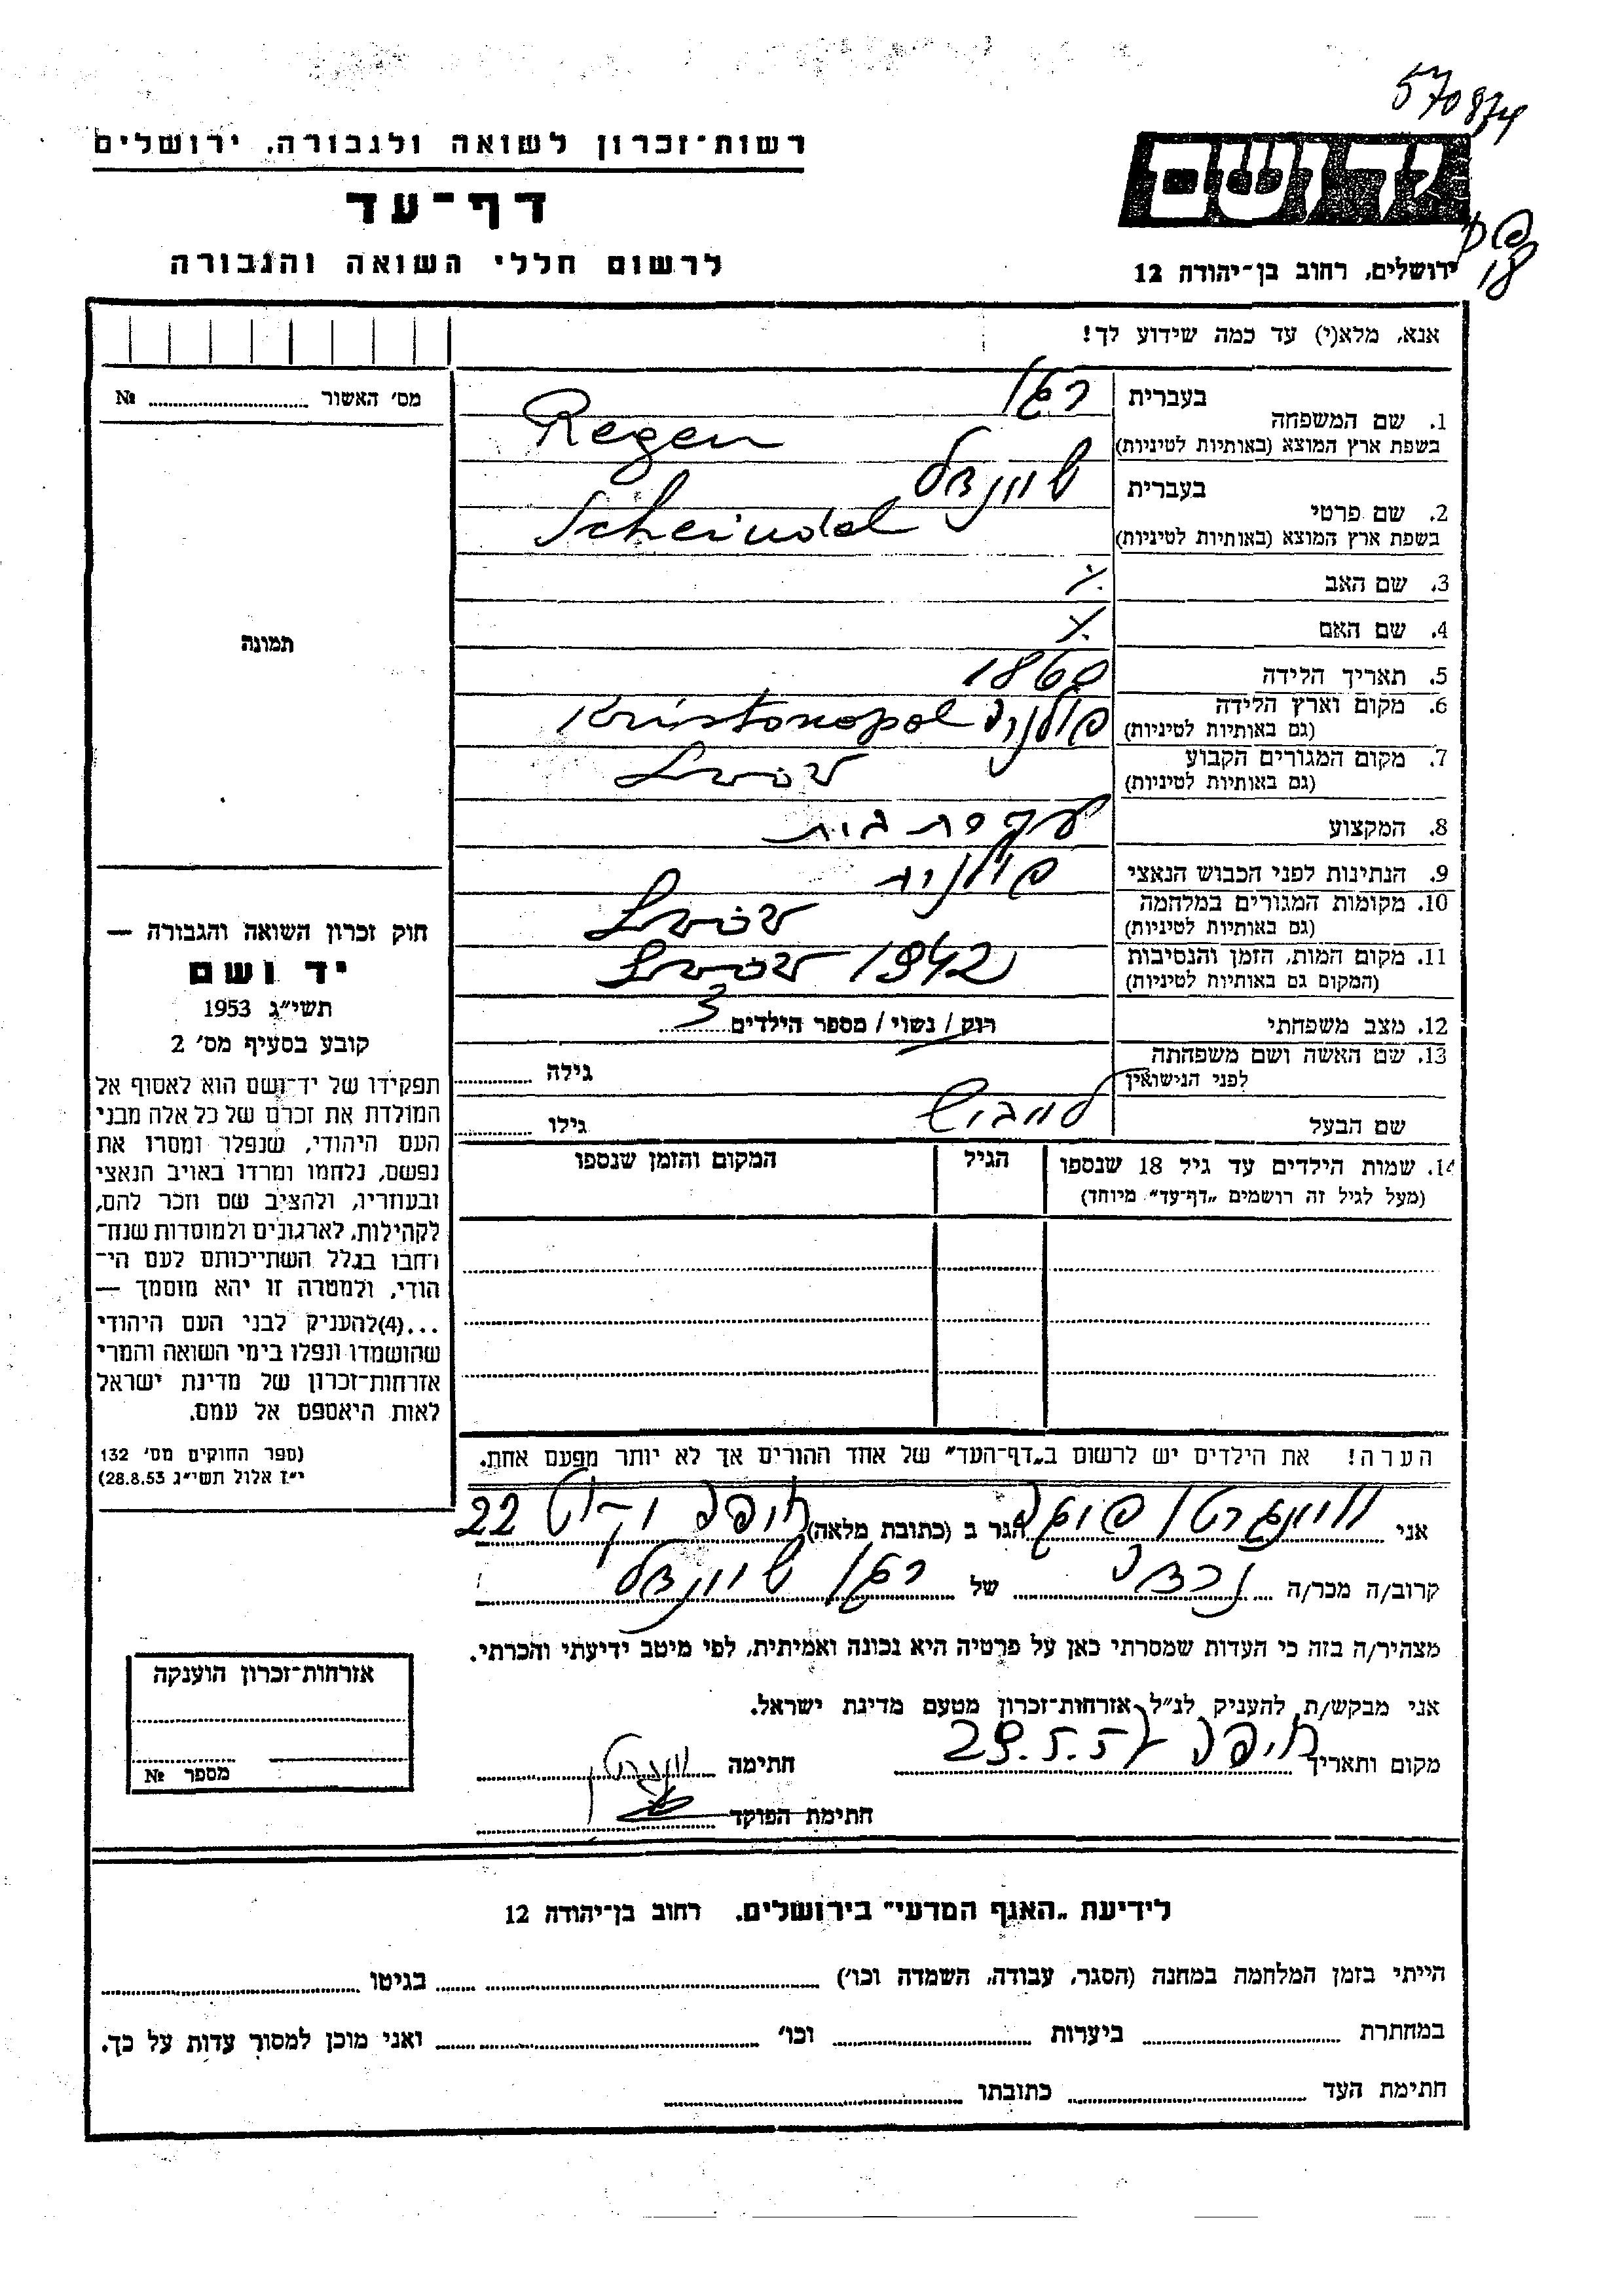 570874
רשות־זכרון לשואה ולגבורה. ירושלים
יד ושם
דף־עד
לרשום חללי השואה והגבורה
ירושלים, רחוב בן־יהודה 12
18
אנא, מלא(י) עד כמה שידוע לך!
מס' האשור № 
1. שם המשפחה
בעברית
רגן
בשפת ארץ המוצא (באותיות לטיניות)
Regen
2. שם פרטי
בעברית
שיינדל
בשפת ארץ המוצא (באותיות לטיניות)
Scheindel
3. שם האב
4. שם האם
5. תאריך הלידה 1860
6. מקום וארץ הלידה
(גם באותיות לטיניות)
פולניה Kristonopol
7. מקום המגורים הקבוע
(גם באותיות לטיניות)
8. המקצוע עקרת בית
9. הנתינות לפני הכבוש הנאצי פולניה
10. מקומות המגורים במלחמה
(גם באותיות לטיניות)
11. מקום המות, הזמן והנסיבות
(המקום גם באותיות לטיניות)
1942
12. מצב משפחתי רוק / נשוי / מספר הילדים 3
13. שם האשה ושם משפחתה
לפני הנישואין
גילה
שם הבעל לייביש גילו
14. שמות הילדים עד גיל 18 שנספו
(מעל לגיל זה רושמים „דף־עד" מיוחד)
הגיל
המקום והזמן שנספו
תמונה
חוק זכרון השואה והגבורה —
יד ושם
תשי"ג 1953
קובע בסעיף מס' 2
תפקידו של יד־ושם הוא לאסוף אל
המולדת את זכרם של כל אלה מבני
העם היהודי, שנפלו ומסרו את
נפשם, נלחמו ומרדו באויב הנאצי
ובעוזריו, ולהציב שם וזכר להם,
לקהילות, לארגונים ולמוסדות שנח־
רחבו בגלל השתייכותם לעם הי־
הודי, ולמטרה זו יהא מוסמך —
...(4)להעניק לבני העם היהודי
שהושמדו ונפלו בימי השואה והמרי
אזרחות־זכרון של מדינת ישראל
לאות היאספם אל עמם.
(ספר החוקים מס' 132
י"ז אלול תשי"ג 28.8.53)
הערה! את הילדים יש לרשום ב„דף־העד" של אחד ההורים אך לא יותר מפעם אחת.
אני ויינגרטן הגר ב (כתובת מלאה) חיפה 22
קרוב/ה מכר/ה נכדה של רגן שיינדל
מצהיר/ה בזה כי העדות שמסרתי כאן על פרטיה היא נכונה ואמיתית, לפי מיטב ידיעתי והכרתי.
אני מבקש/ת להעניק לנ"ל אזרחות־זכרון מטעם מדינת ישראל.
מקום ותאריך חיפה 29.5.57
חתימה
חתימת הפוקד
אזרחות־זכרון הוענקה
מספר №
לידיעת „האגף המדעי" בירושלים. רחוב בן־יהודה 12
הייתי בזמן המלחמה במחנה (הסגר, עבודה, השמדה וכו') בגיטו
במחתרת ביערות וכו' ואני מוכן למסור עדות על כך.
חתימת העד כתובתו